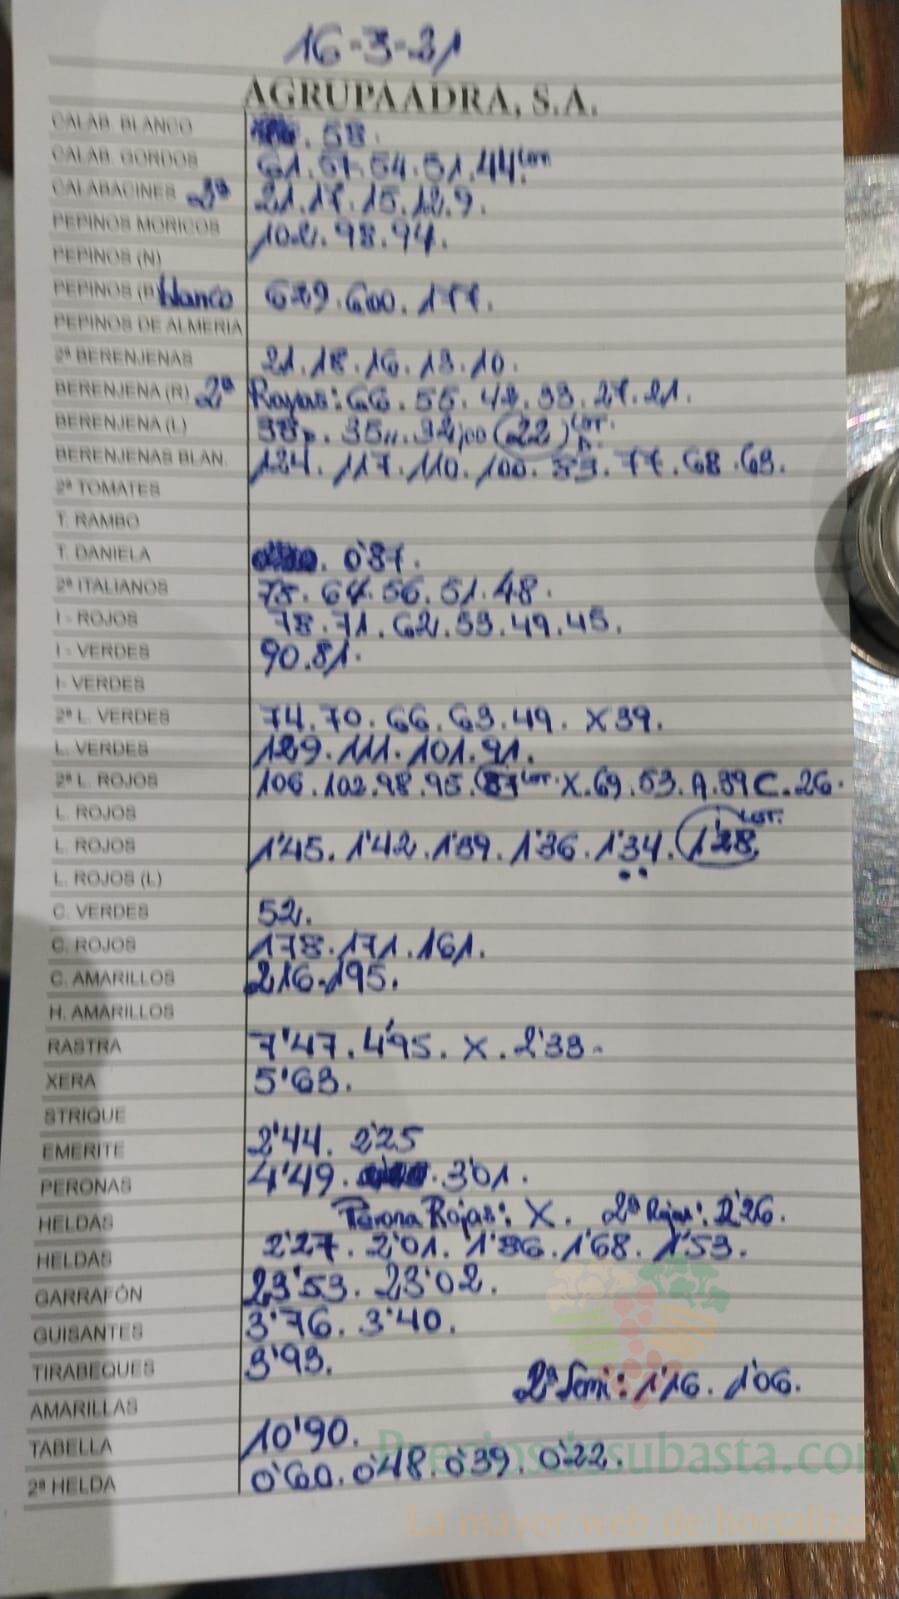 16-3-21
AGRUPAADRA, S.A.
CALAB. BLANCO . 58.
CALAB. GORDOS 61. 57. 54. 51. 44. LOT
CALABACINES 2ª 21. 17. 15. 12. 9.
PEPINOS MORICOS 102. 98. 94.
PEPINOS (N)
PEPINOS (B blanco 629. 600. 177.
PEPINOS DE ALMERIA
2ª BERENJENAS 21. 18. 16. 13. 10.
BERENJENA (R) 2ª Rayas: 66. 55. 42. 33. 27. 21.
BERENJENA (L) 38 . 35 . 32 (22) LOT.
BERENJENAS BLAN. 124. 117. 110. 100. 83. 77. 68. 63.
2ª TOMATES
T. RAMBO
T. DANIELA . 0'87.
2ª ITALIANOS 75. 64. 56. 51. 48.
I - ROJOS 78. 71. 62. 53. 49. 45.
I - VERDES 90. 81.
I- VERDES
2ª L. VERDES 74. 70. 66. 63. 49. X 39.
L. VERDES 129. 111. 101. 91.
2ª L. ROJOS 106. 102. 98. 95. 87 LOT. X. 69. 53. A. 39 C. 26.
L. ROJOS
L. ROJOS 1'45. 1'42. 1'39. 1'36. 1'34. 1'28 LOT.
L. ROJOS (L)
C. VERDES 52.
C. ROJOS 178. 171. 161.
C. AMARILLOS 216. 195.
H. AMARILLOS
RASTRA 7'47. 4'95. X. 2'33.
XERA 5'63.
STRIQUE
EMERITE 2'44. 2'25
PERONAS 4'49. . 3'01.
HELDAS Perona Rojas: X. 2ª Rojas: 2'26.
HELDAS 2'27. 2'01. 1'86. 1'68. 1'53.
GARRAFÓN 23'53. 23'02.
GUISANTES 3'76. 3'40.
TIRABEQUES 3'93.
AMARILLAS 2ª Semi: 1'16. 1'06.
TABELLA 10'90.
2ª HELDA 0'60. 0'48. 0'39. 0'22.
Preciosdesubasta.com
La mayor web de hortalizas